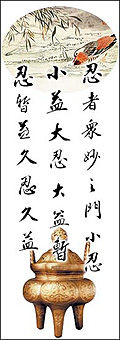 忍者衆妙之門小忍
小益大忍大益暫
忍暫益久忍久益